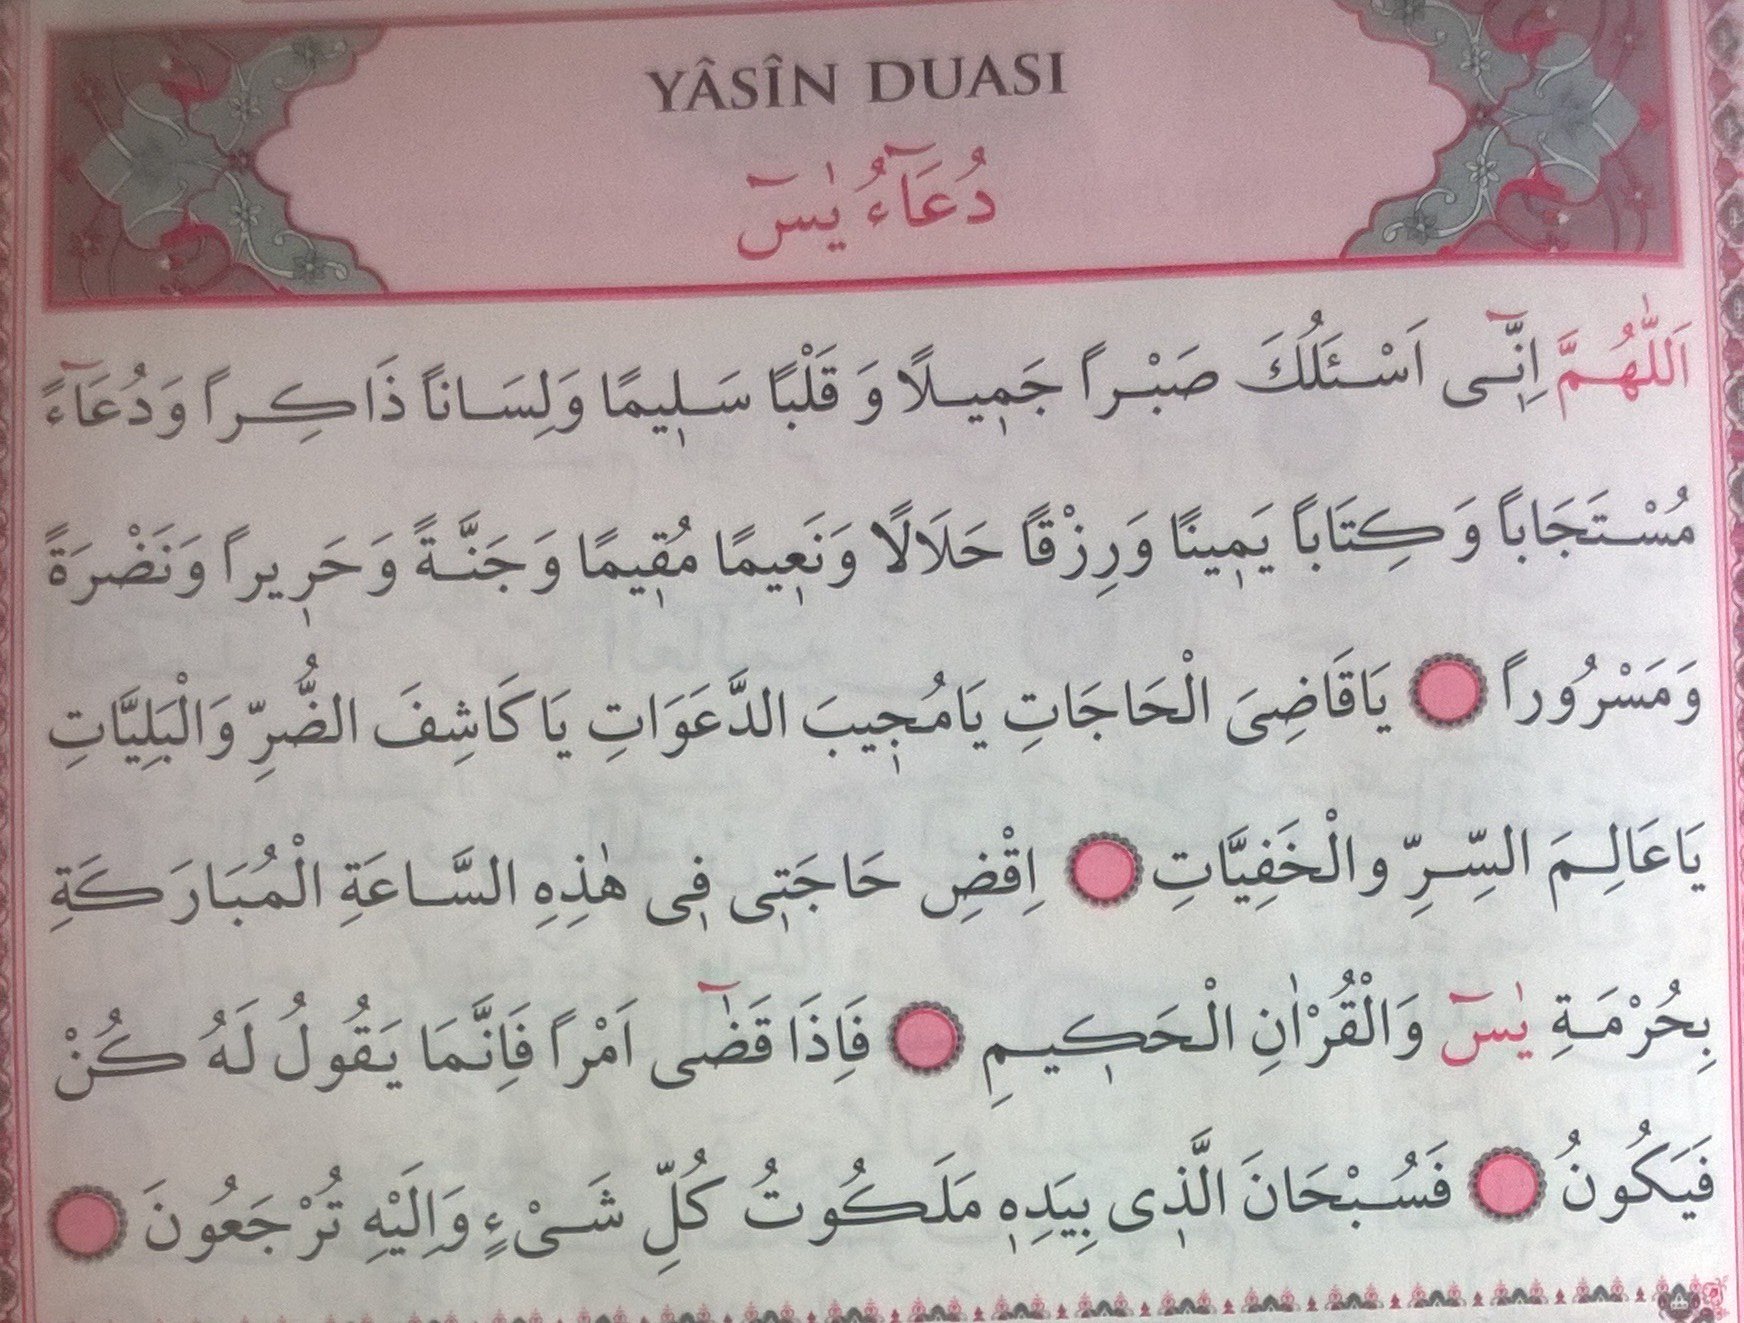 YÂSÎN DUASI
دُعَآءُ يٰسٓ
اَللّٰهُمَّ اِنّ۪ٓى اَسْـئَلُكَ صَبْراً جَم۪يلًا وَ قَلْبًا سَل۪يمًا وَلِسَاناً ذَاكِراً وَدُعَآءً
مُسْتَجَاباً وَ كِتَاباً يَم۪ينًا وَرِزْقاً حَلَالًا وَنَع۪يمًا مُق۪يمًا وَجَنَّةً وَحَر۪يراً وَنَضْرَةً
وَمَسْرُوراً يَاقَاضِىَ الْحَاجَاتِ يَامُج۪يبَ الدَّعَوَاتِ يَا كَاشِفَ الضُّرِّ وَالْبَلِيَّاتِ
يَاعَالِمَ السِّرِّ والْخَفِيَّاتِ اِقْضِ حَاجَت۪ى ف۪ى هٰذِهِ السَّاعَةِ الْمُبَارَكَةِ
بِحُرْمَةِ يٰسٓ وَالْقُرْاٰنِ الْحَك۪يمِ فَاِذَا قَضٰٓى اَمْراً فَاِنَّمَا يَقُولُ لَهُ كُنْ
فَيَكُونُ فَسُبْحَانَ الَّذ۪ى بِيَدِه۪ مَلَكُوتُ كُلِّ شَىْءٍ وَاِلَيْهِ تُرْجَعُونَ